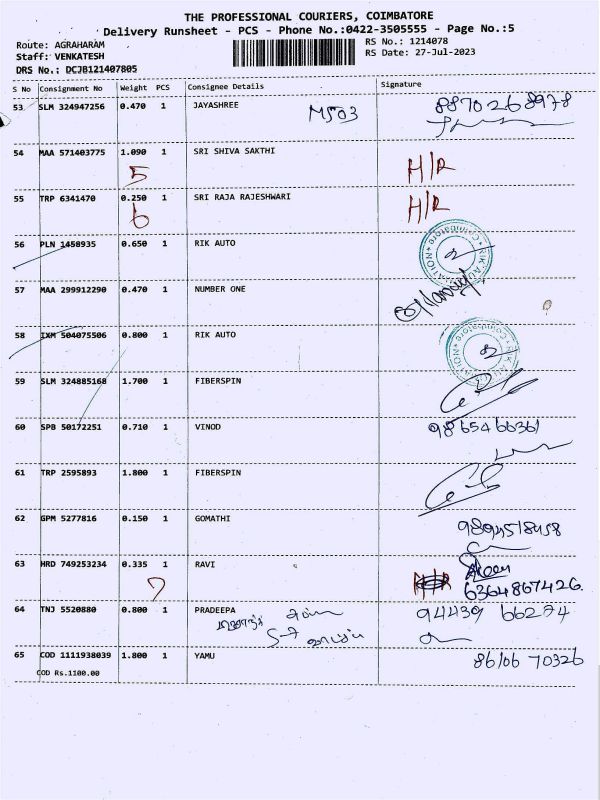 THE PROFESSIONAL COURIERS, COIMBATORE
Delivery Runsheet - PCS - Phone No.:0422-3505555 - Page No.:5
Route: AGRAHARAM RS No.: 1214078
Staff: VENKATESH RS Date: 27-Jul-2023
DRS No.: DCJB121407805
S No Consignment No Weight PCS Consignee Details Signature
53 SLM 324947256 0.470 1 JAYASHREE M503 8870268978
54 MAA 571403775 1.090 1 SRI SHIVA SAKTHI H/R
5
55 TRP 6341470 0.250 1 SRI RAJA RAJESHWARI H/R
6
56 PLN 1458935 0.650 1 RIK AUTO
57 MAA 299912290 0.470 1 NUMBER ONE
58 IXM 504075506 0.800 1 RIK AUTO
59 SLM 324885168 1.700 1 FIBERSPIN
60 SPB 50172251 0.710 1 VINOD 9865466361
61 TRP 2595893 1.800 1 FIBERSPIN
62 GPM 5277816 0.150 1 GOMATHI 9894518458
63 HRD 749253234 0.335 1 RAVI H/R
7 6364867426.
64 TNJ 5520880 0.800 1 PRADEEPA 94439 66274
S-7
65 COD 1111938039 1.800 1 YAMU 86106 70326
COD Rs.1100.00